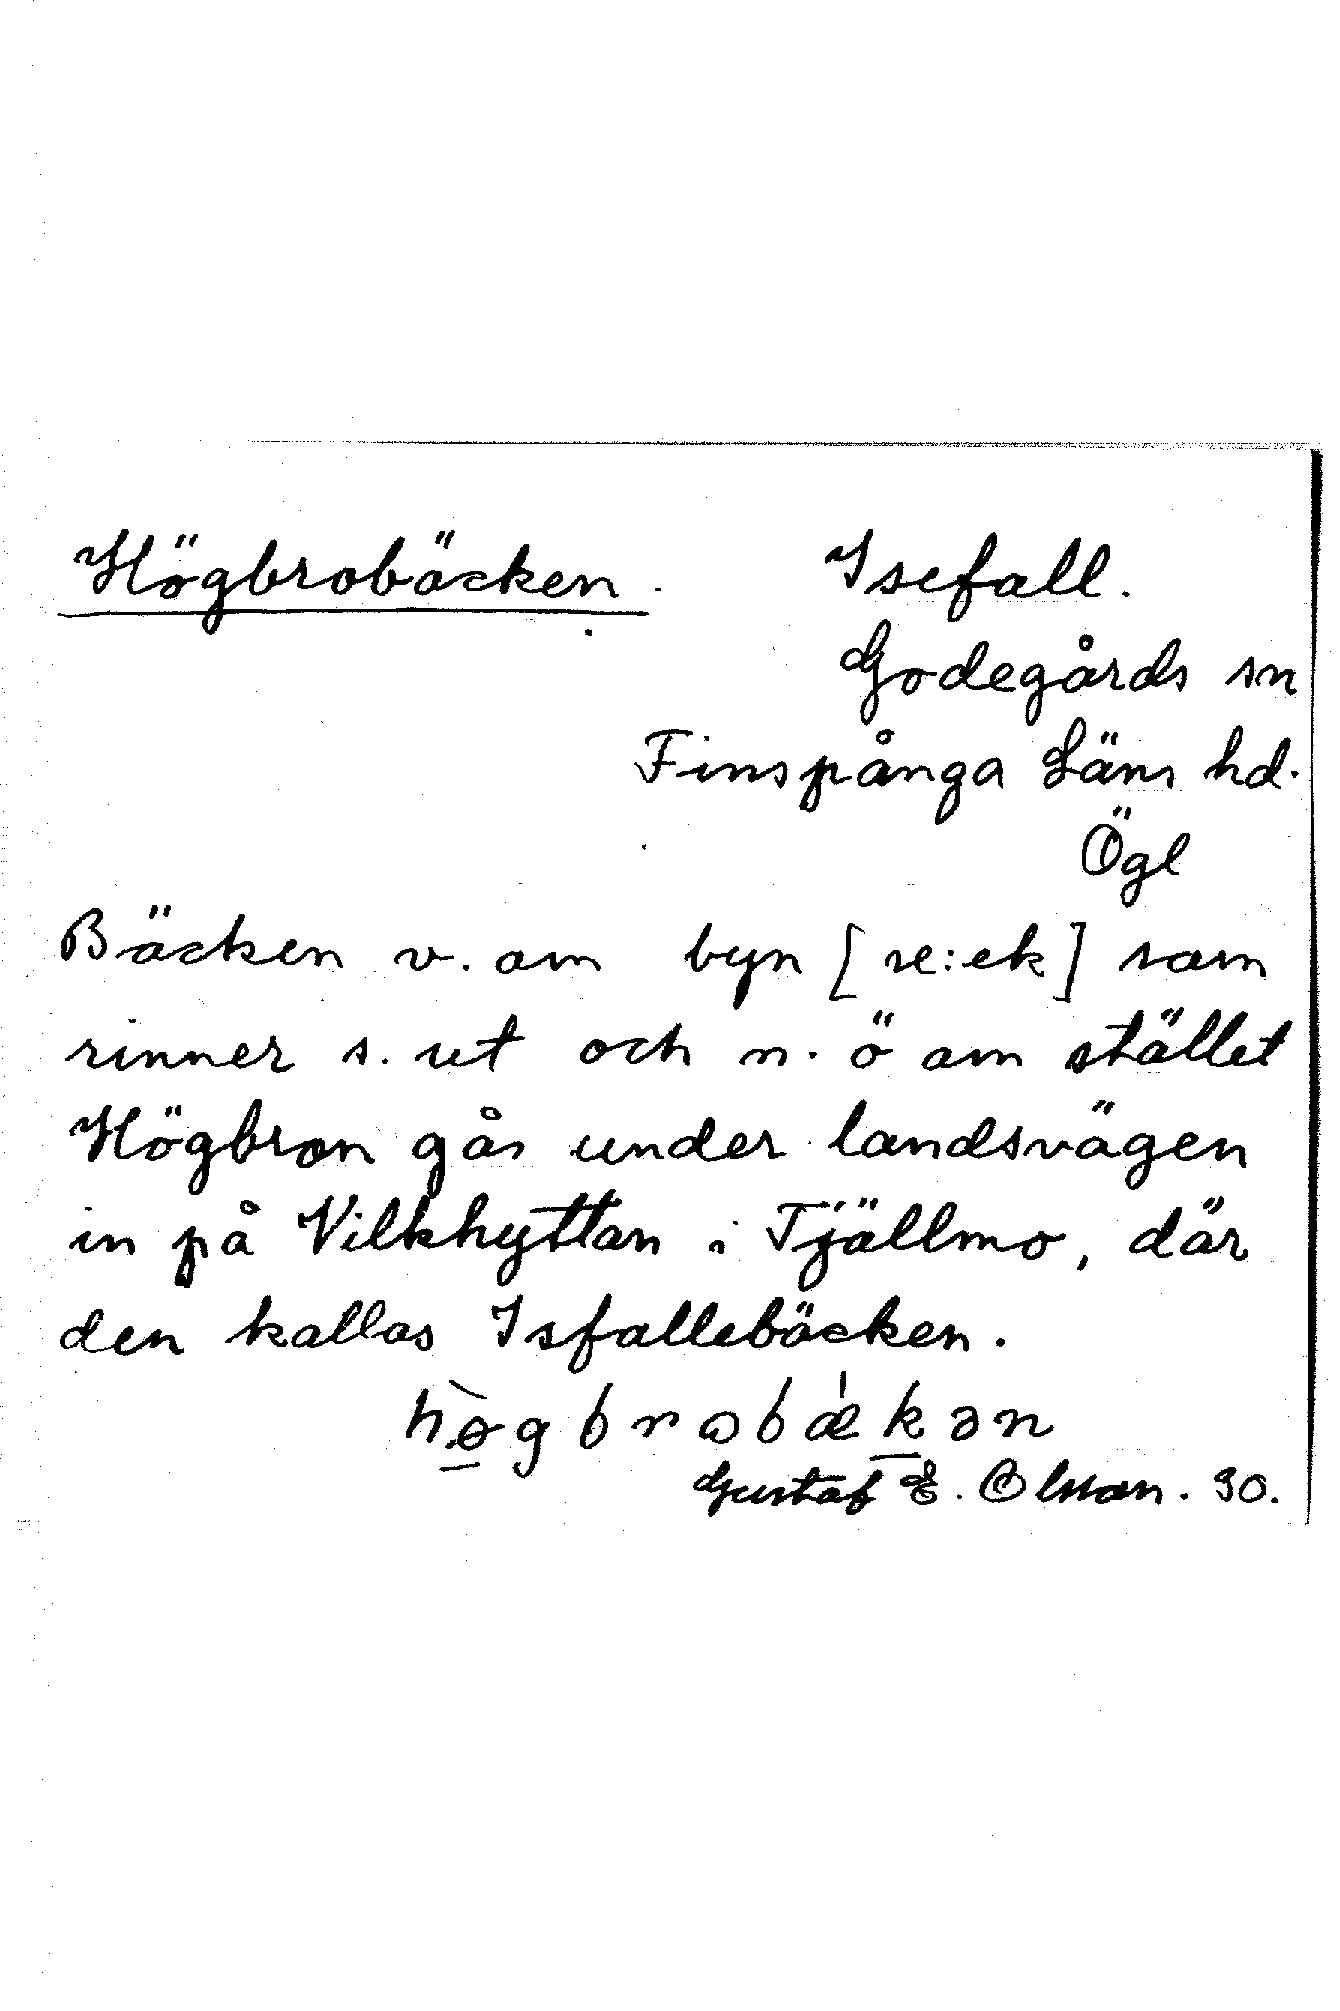 Högbrobäcken. Isefall.
Godegårds sn
Finspånga Läns hd.
Ögl
Bäcken v. om byn [se: ek] som
rinner s. ut och n. ö om stället
Högbron går under landsvägen
in på Vilkhyttan i Tjällmo, där
den kallas Isfallebäcken.
hø̀gbrωbækən
Gustaf E. Olsson. 30.